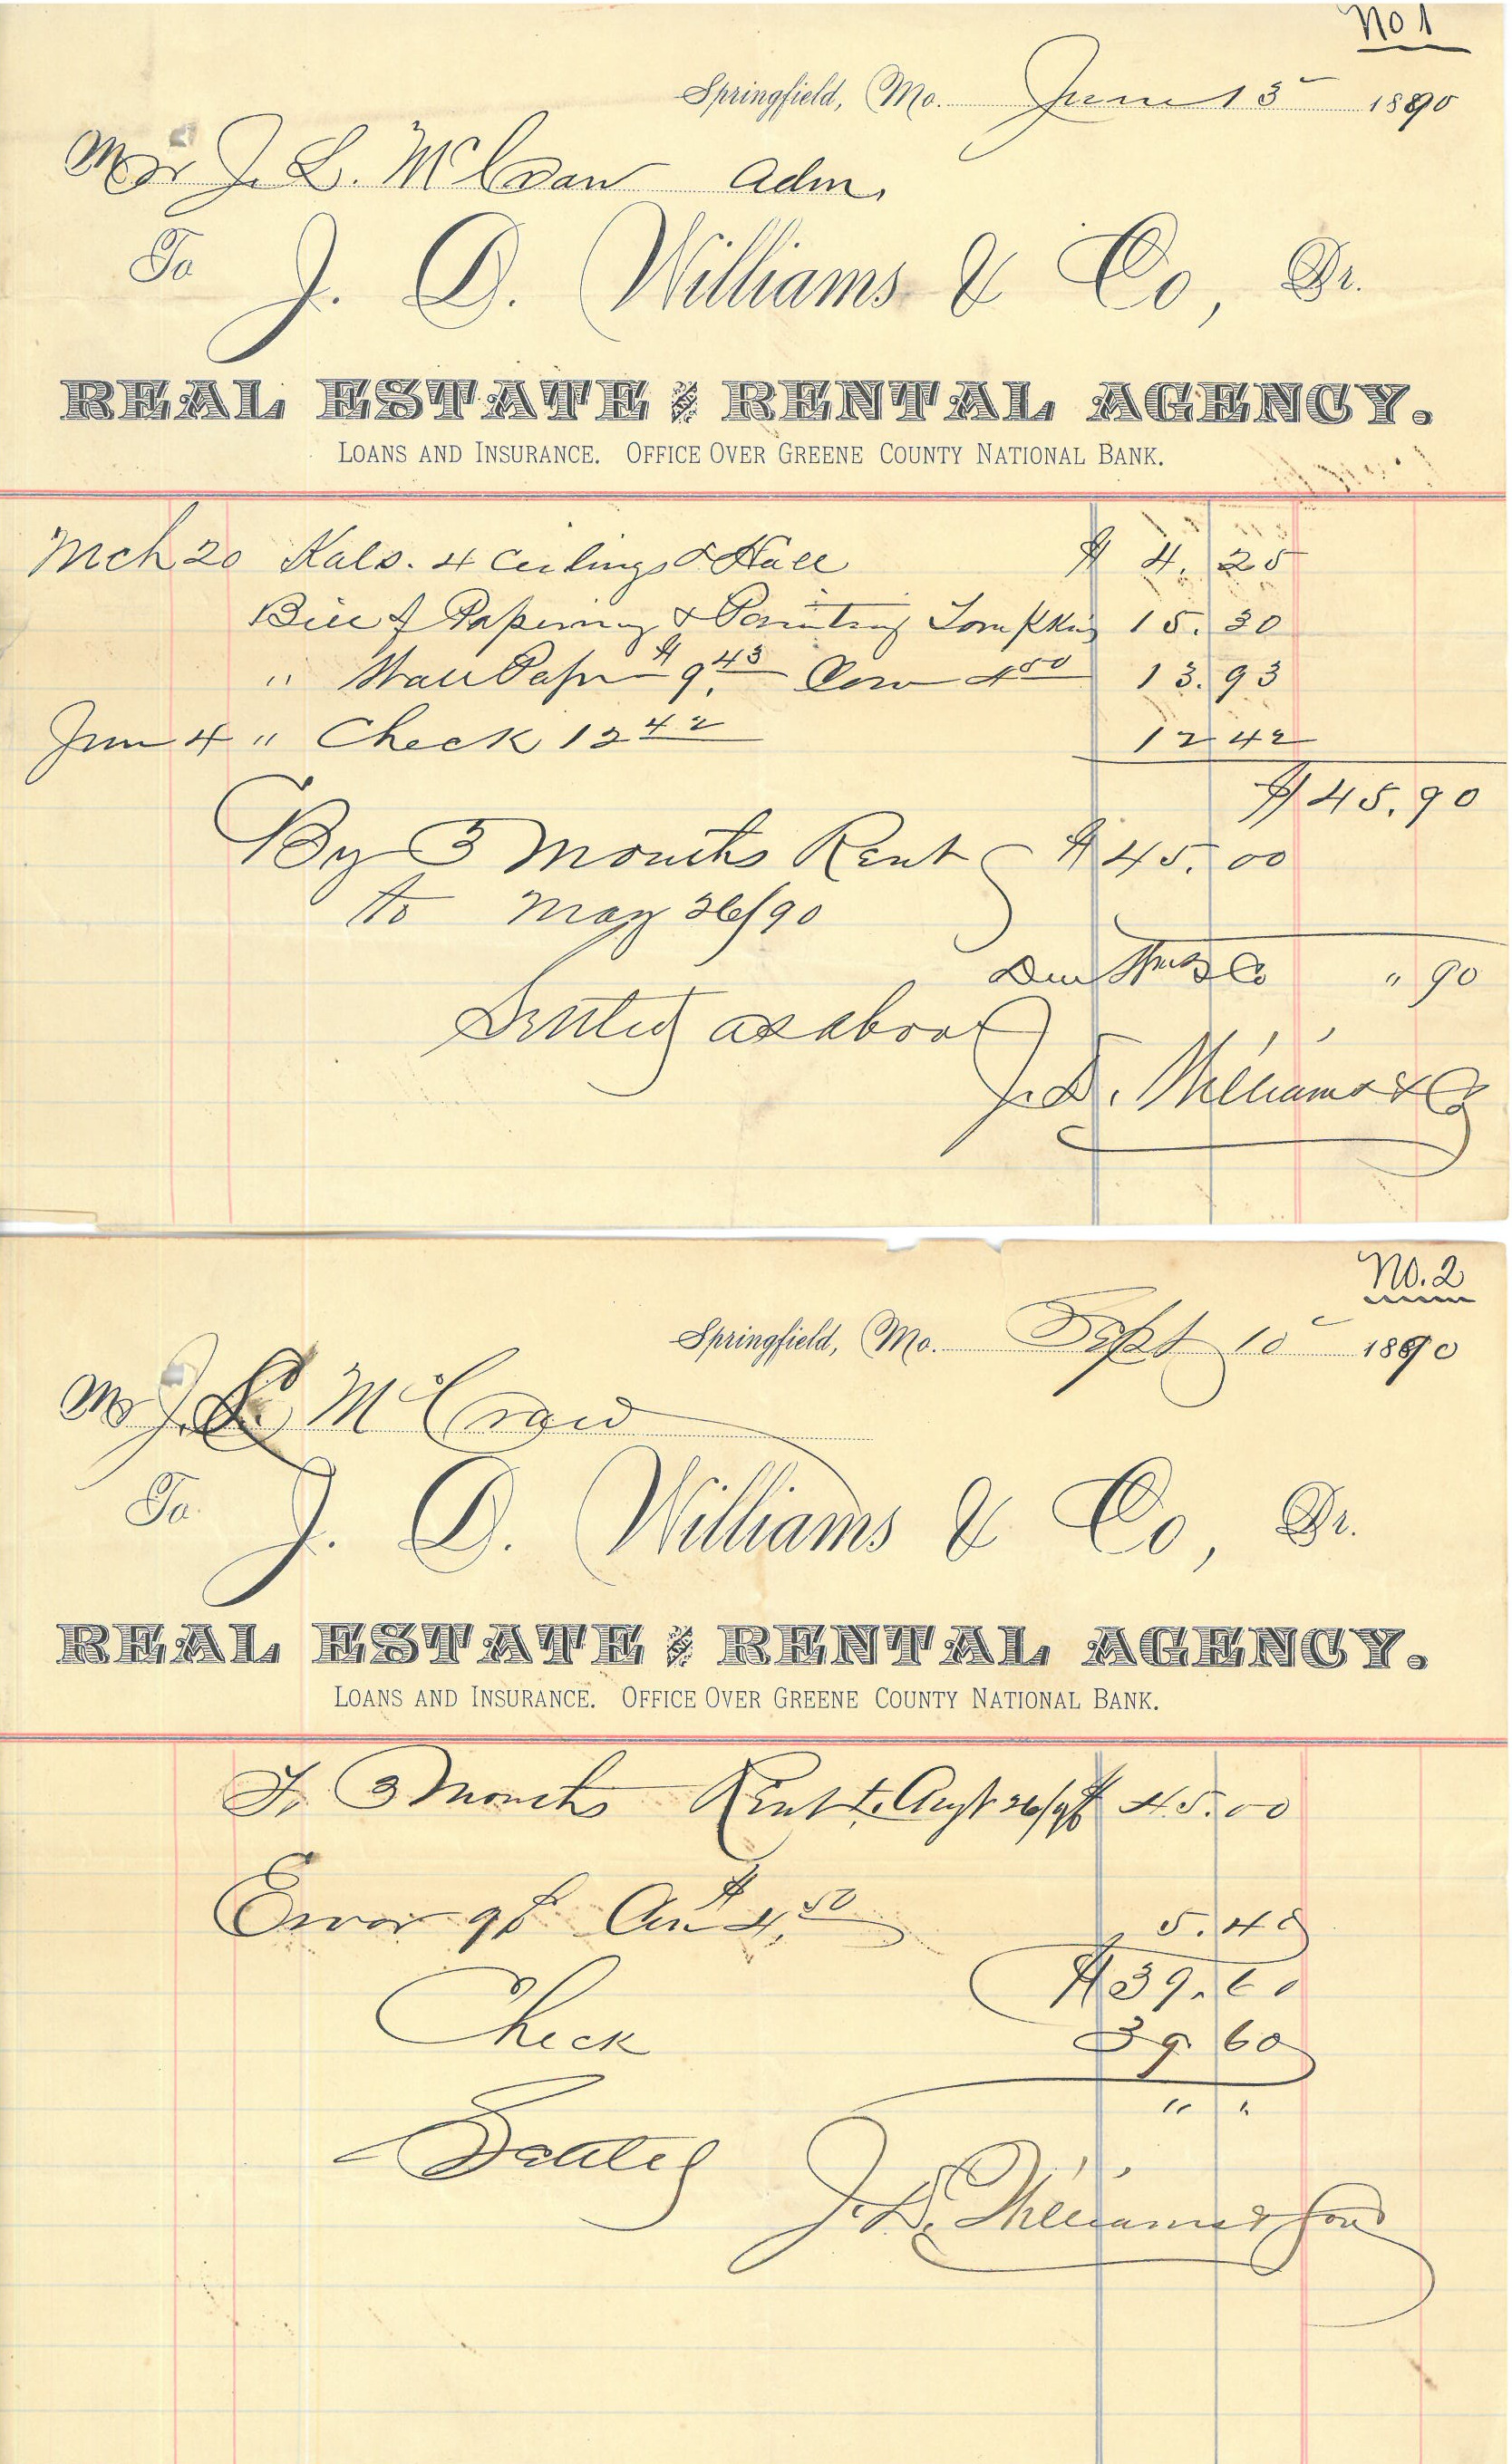 No 1
Springfield, Mo. June 13 1890
Mr J. L. McCraw Adm.
To J. D. Williams & Co, Dr.
REAL ESTATE & RENTAL AGENCY.
LOANS AND INSURANCE. OFFICE OVER GREENE COUNTY NATIONAL BANK.
Mch 20 Kals. 4 Ceilings & Hall $ 4.25
Bill of Papering & Painting Tompkins 15.30
" Wall Paper $9.43 Com 4 50 13.93
Jun 4 " Check 12 42 12 42
$45.90
By 3 Months Rent $45.00
to May 26/90
Due Wms & Co " 90
Settled as above
J. D. Williams & Co
No. 2
Springfield, Mo. Sept 10 1890
Mr J. L. McCraw
To J. D. Williams & Co, Dr.
REAL ESTATE & RENTAL AGENCY.
LOANS AND INSURANCE. OFFICE OVER GREENE COUNTY NATIONAL BANK.
To 3 Months Rent to Augt 26/90 $ 45.00
Error 90 $4.50 5.40
$39.60
Check 39 60
" "
Settled
J. D. Williams & Sons